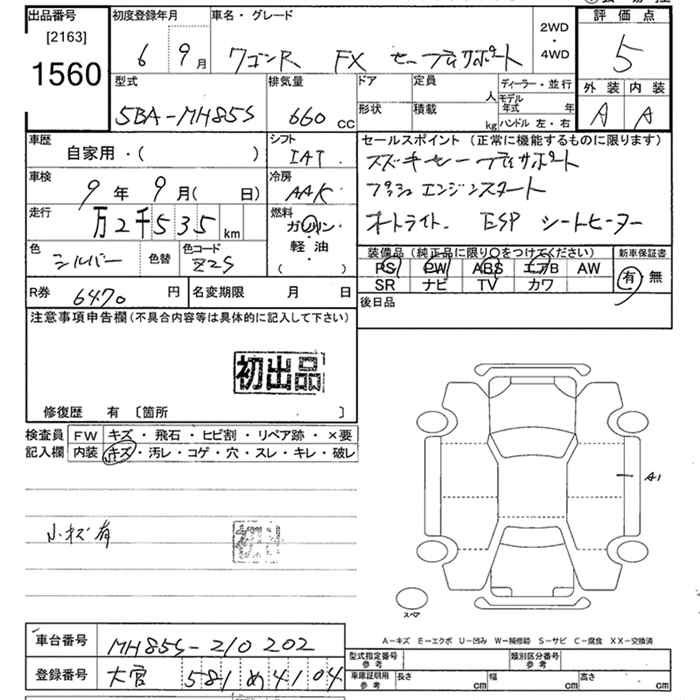 出品番号 初度登録年月 車名・グレード 2WD・4WD 評価点
[2163]
1560 6 9月 ワゴンR FX セーフティサポート 5
型式 排気量 ドア 定員 人 ディーラー・並行 外装 内装
5BA-MH85S 660 CC 形状 積載 kg モデル年式 年 ハンドル 左・右 A A
車歴 シフト セールスポイント (正常に機能するものに限ります)
自家用・( ) IAT スズキセーフティサポート
車検 9年 9月( 日) 冷房 AAC プッシュエンジンスタート
走行 万2千535km 燃料 ガソリン・軽油・( ) オートライト. ESP シートヒーター
色 シルバー 色替 色コード Z2S 装備品 (純正品に限り○をつけてください) 新車保証書
PS PW ABS エアB AW 有 無
R券 6470円 名変期限 月 日 SR ナビ TV カワ
注意事項申告欄(不具合内容等は具体的に記入して下さい) 後日品
初出品
修復歴 有 〔箇所 〕
検査員 FW キズ・飛石・ヒビ割・リペア跡・×要
記入欄 内装 キズ・汚レ・コゲ・穴・スレ・キレ・破レ
A1
小キズ有
スペア
A-キズ E-エクボ U-凹み W-補修跡 S-サビ C-腐食 XX-交換済
車台番号 MH85S-210202
型式指定番号 参考 類別区分番号 参考
登録番号 大宮 581 め 4104
車庫証明用 参考 長さ cm 幅 cm 高さ cm